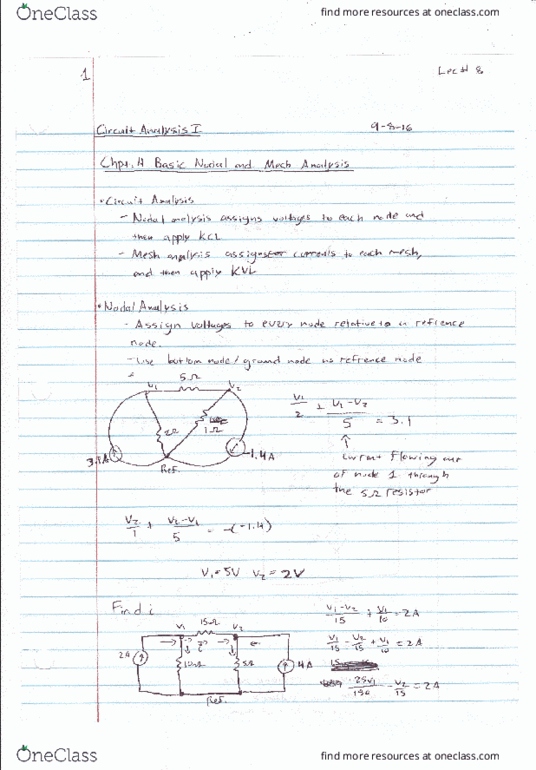 OneClass
find more resources at oneclass.com
1
Lec# 8
Circuit Analysis I
9-8-16
Chpt. 4 Basic Nodal and Mech Analysis
• Circuit Analysis
- Nodal analysis assigns voltages to each node and
then apply KCL
- Mesh analysis assigns currents to each mesh,
and then apply KVL
• Nodal Analysis
- Assign voltages to every node relative to a refrence
node.
- Use bottom node/ground node as refrence node
5Ω
V₁ V₂
2Ω 1Ω
3.1A -1.4A
Ref.
V₁/2 + (V₁-V₂)/5 = 3.1
↑
Current flowing out
of node 1 through
the 5Ω resistor
V₂/1 + (V₂-V₁)/5 = -(-1.4)
V₁=5V V₂=2V
Find i
15Ω
V₁ V₂
2A 10Ω 5Ω 4A
Ref.
(V₁-V₂)/15 + V₁/10 = 2A
V₁/15 - V₂/15 + V₁/10 = 2A
25V₁/150 - V₂/15 = 2A
OneClass
find more resources at oneclass.com